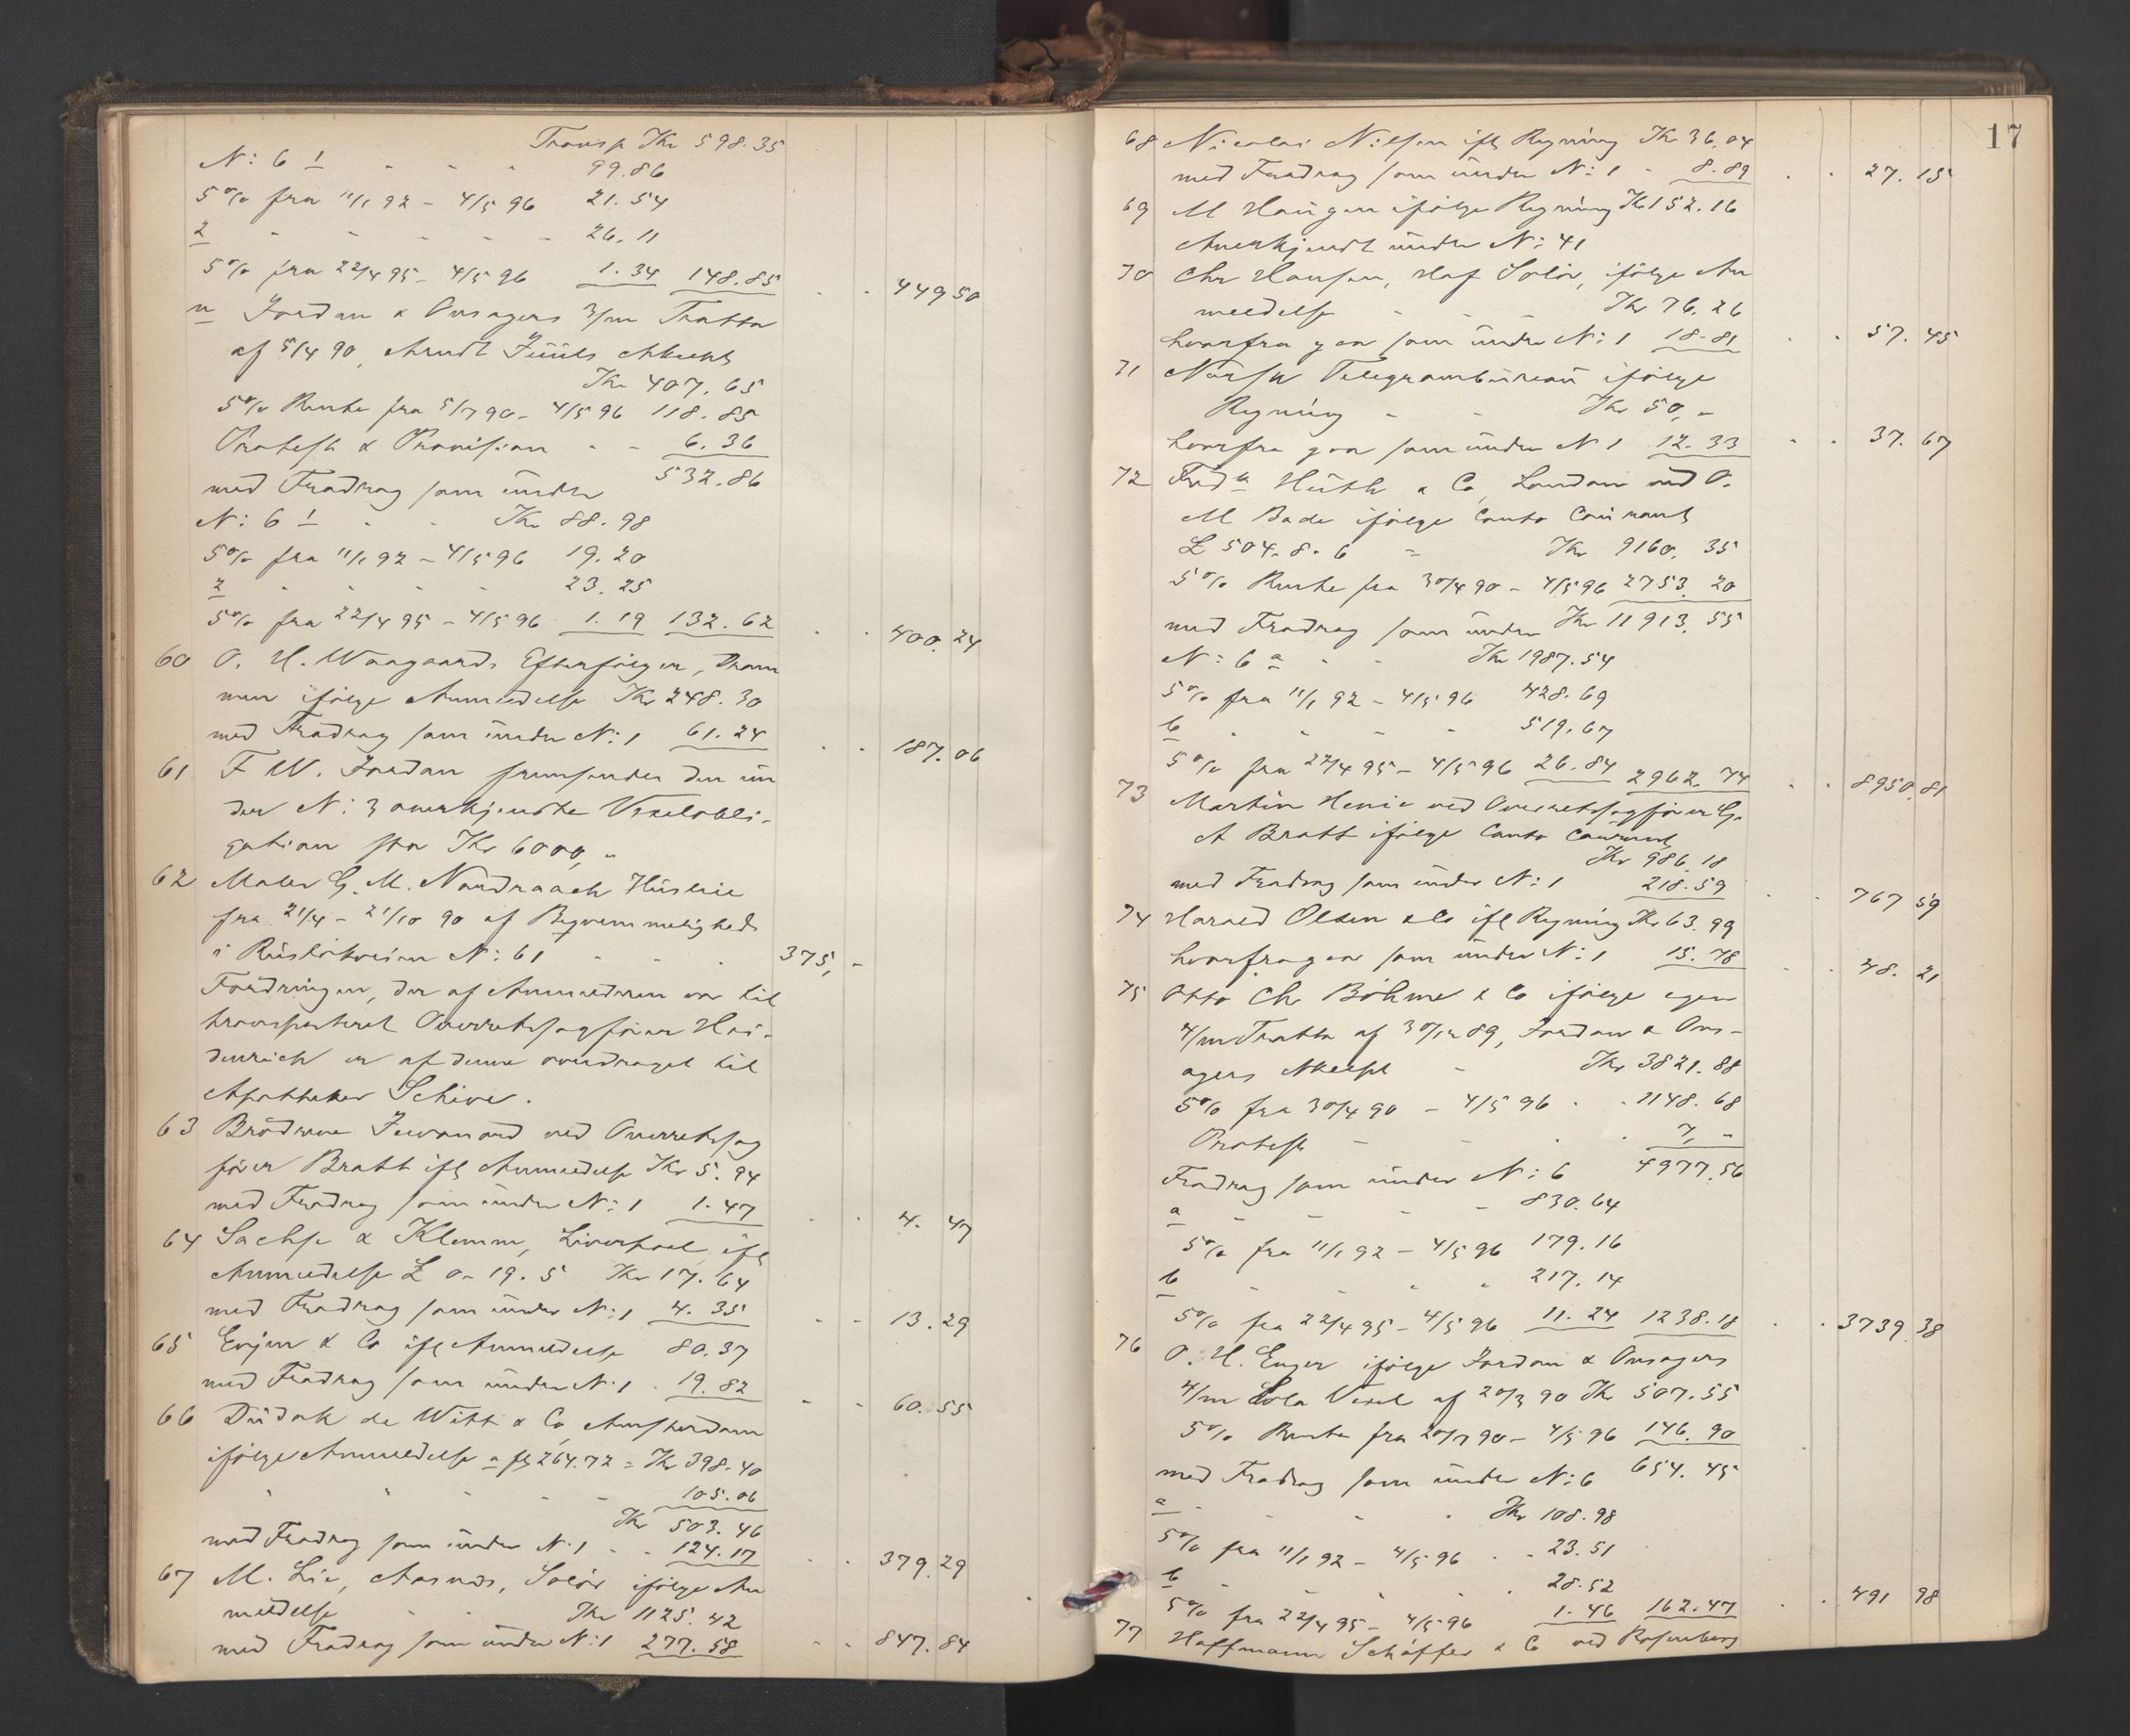 Transp Kr 598.35
N: 6 1 - - - 99.86
5% fra 11/1 92 - 4/5 96 21.54
2 - - - - - 26.11
5% fra 22/4 95 - 4/5 96 1.34 148.85 - - 449 50
n Jordan & Onsagers 3/m Tratta
af 5/4 90, Arndt Juuls Akcept
Kr 407.65
5% Rente fra 5/7 90 - 4/5 96 118.85
Protest & Provision - - 6.36
532.86
med Fradrag som under
N: 6 1 - - Kr 88.98
5% fra 11/1 92 - 4/5 96 19.20
2 - - - - 23.25
5% fra 22/4 95 - 4/5 96 1.19 132.62 - - 400.24
60 O. H. Waagaards Efterfølger, Dram
men ifølge Anmeldelse Kr 248.30
med Fradrag som under N: 1 61.24 - - 187.06
61 F W. Jordan fremsender den un
der N: 3 anerkjendte Vexelobli-
gation stor Kr 6000,-
62 Maler G. M. Nordraach Husleie
fra 21/4 - 21/10 90 af Beqvemmelighed
i Ruseløkveien N: 61 - - - 375,-
Fordringen, der af Anmelderen var til
transporteret Overretssagfører Hei-
denreich er af denne overdraget til
Apotheker Schive.
63 Brødrene Juvonord ved Overretssag
fører Bratt ifl Anmeldelse Kr 5.94
med Fradrag som under N: 1 1.47 - - 4.47
64 Sachse & Klemm, Liverpool, ifl
Anmeldelse £ 0-19.5 Kr 17.64
med Fradrag som under N: 1 4.35 - - 13.29
65 Evjen & Co ifl Anmeldelse 80.37
med Fradrag som under N: 1 19.82 - - 60.55
66 Dudok de Witt & Co, Amsterdam
ifølge Anmeldelse a fl 264.72 = Kr 398.40
" " - - - 105.06
Kr 503.46
med Fradrag som under N: 1 - - 124.17 - - 379.29
67 M. Lie, Aasnæs, Solør ifølge An
meldelse - - Kr 1125.42
med Fradrag som under N: 1 277.58 - - 847.84
17
68 Nicolai Nilsen ifl Regning Kr 36.04
med Fradrag som under N: 1 - 8.89 - - 27.15
69 M Haugen ifølge Regning Kr 152.16
Anerkjendt under N: 41
70 Chr Hansen, Hof Solør, ifølge An
meldelse - - - Kr 76.26
hvorfra gaar som under N: 1 18.81 - - 57.45
71 Norsk Telegrambureau ifølge
Regning - - Kr 50,-
hvorfra gaar som under N 1 12.33 - - 37.67
72 Fredk Huth & Co, London ved O.
M Bade ifølge Conto Courant
£ 504.8.6 = Kr 9160.35
5% Rente fra 30/4 90 - 4/5 96 2753.20
med Fradrag som under Kr 11913.55
N: 6 a - - Kr 1987.54
5% fra 11/1 92 - 4/5 96 428.69
b - - - - 519.67
5% fra 22/4 95 - 4/5 96 26.84 2962.74 - - 8950.81
73 Martin Henie ved Overretssagfører G.
A Bratt ifølge Conto Courant
Kr 986.18
med Fradrag som under N: 1 218.59 - - 767 59
74 Harald Olsen & Co ifl Regning Kr 63.99
hvorfra gaar som under N: 1 15.78 - - 48.21
75 Otto Ch Böhme & Co ifølge egen
4/m Tratta af 30/12 89, Jordan & Ons-
agers Akcept - Kr 3821.88
5% fra 30/4 90 - 4/5 96 - - 1148.68
Protest - - - - 7,-
4977.56
Fradrag som under N: 6
a - - - - 830.64
5% fra 11/1 92 - 4/5 96 179.16
b - - - - 217.14
5% fra 22/4 95 - 4/5 96 11.24 1238.18 - - 3739.38
76 O. H. Enger ifølge Jordan & Onsagers
4/m Sola Vexel af 20/3 90 Kr 507.55
5% Rente fra 20/7 90 - 4/5 96 146.90
654.45
med Fradrag som under N: 6
a - - - Kr 108.98
5% fra 11/1 92 - 4/5 96 - - 23.51
b - - - - 28.52
5% fra 22/4 95 - 4/5 96 1.46 162.47 - - 491 98
77 Hoffmann Schäffer & Co ved Rosenberg